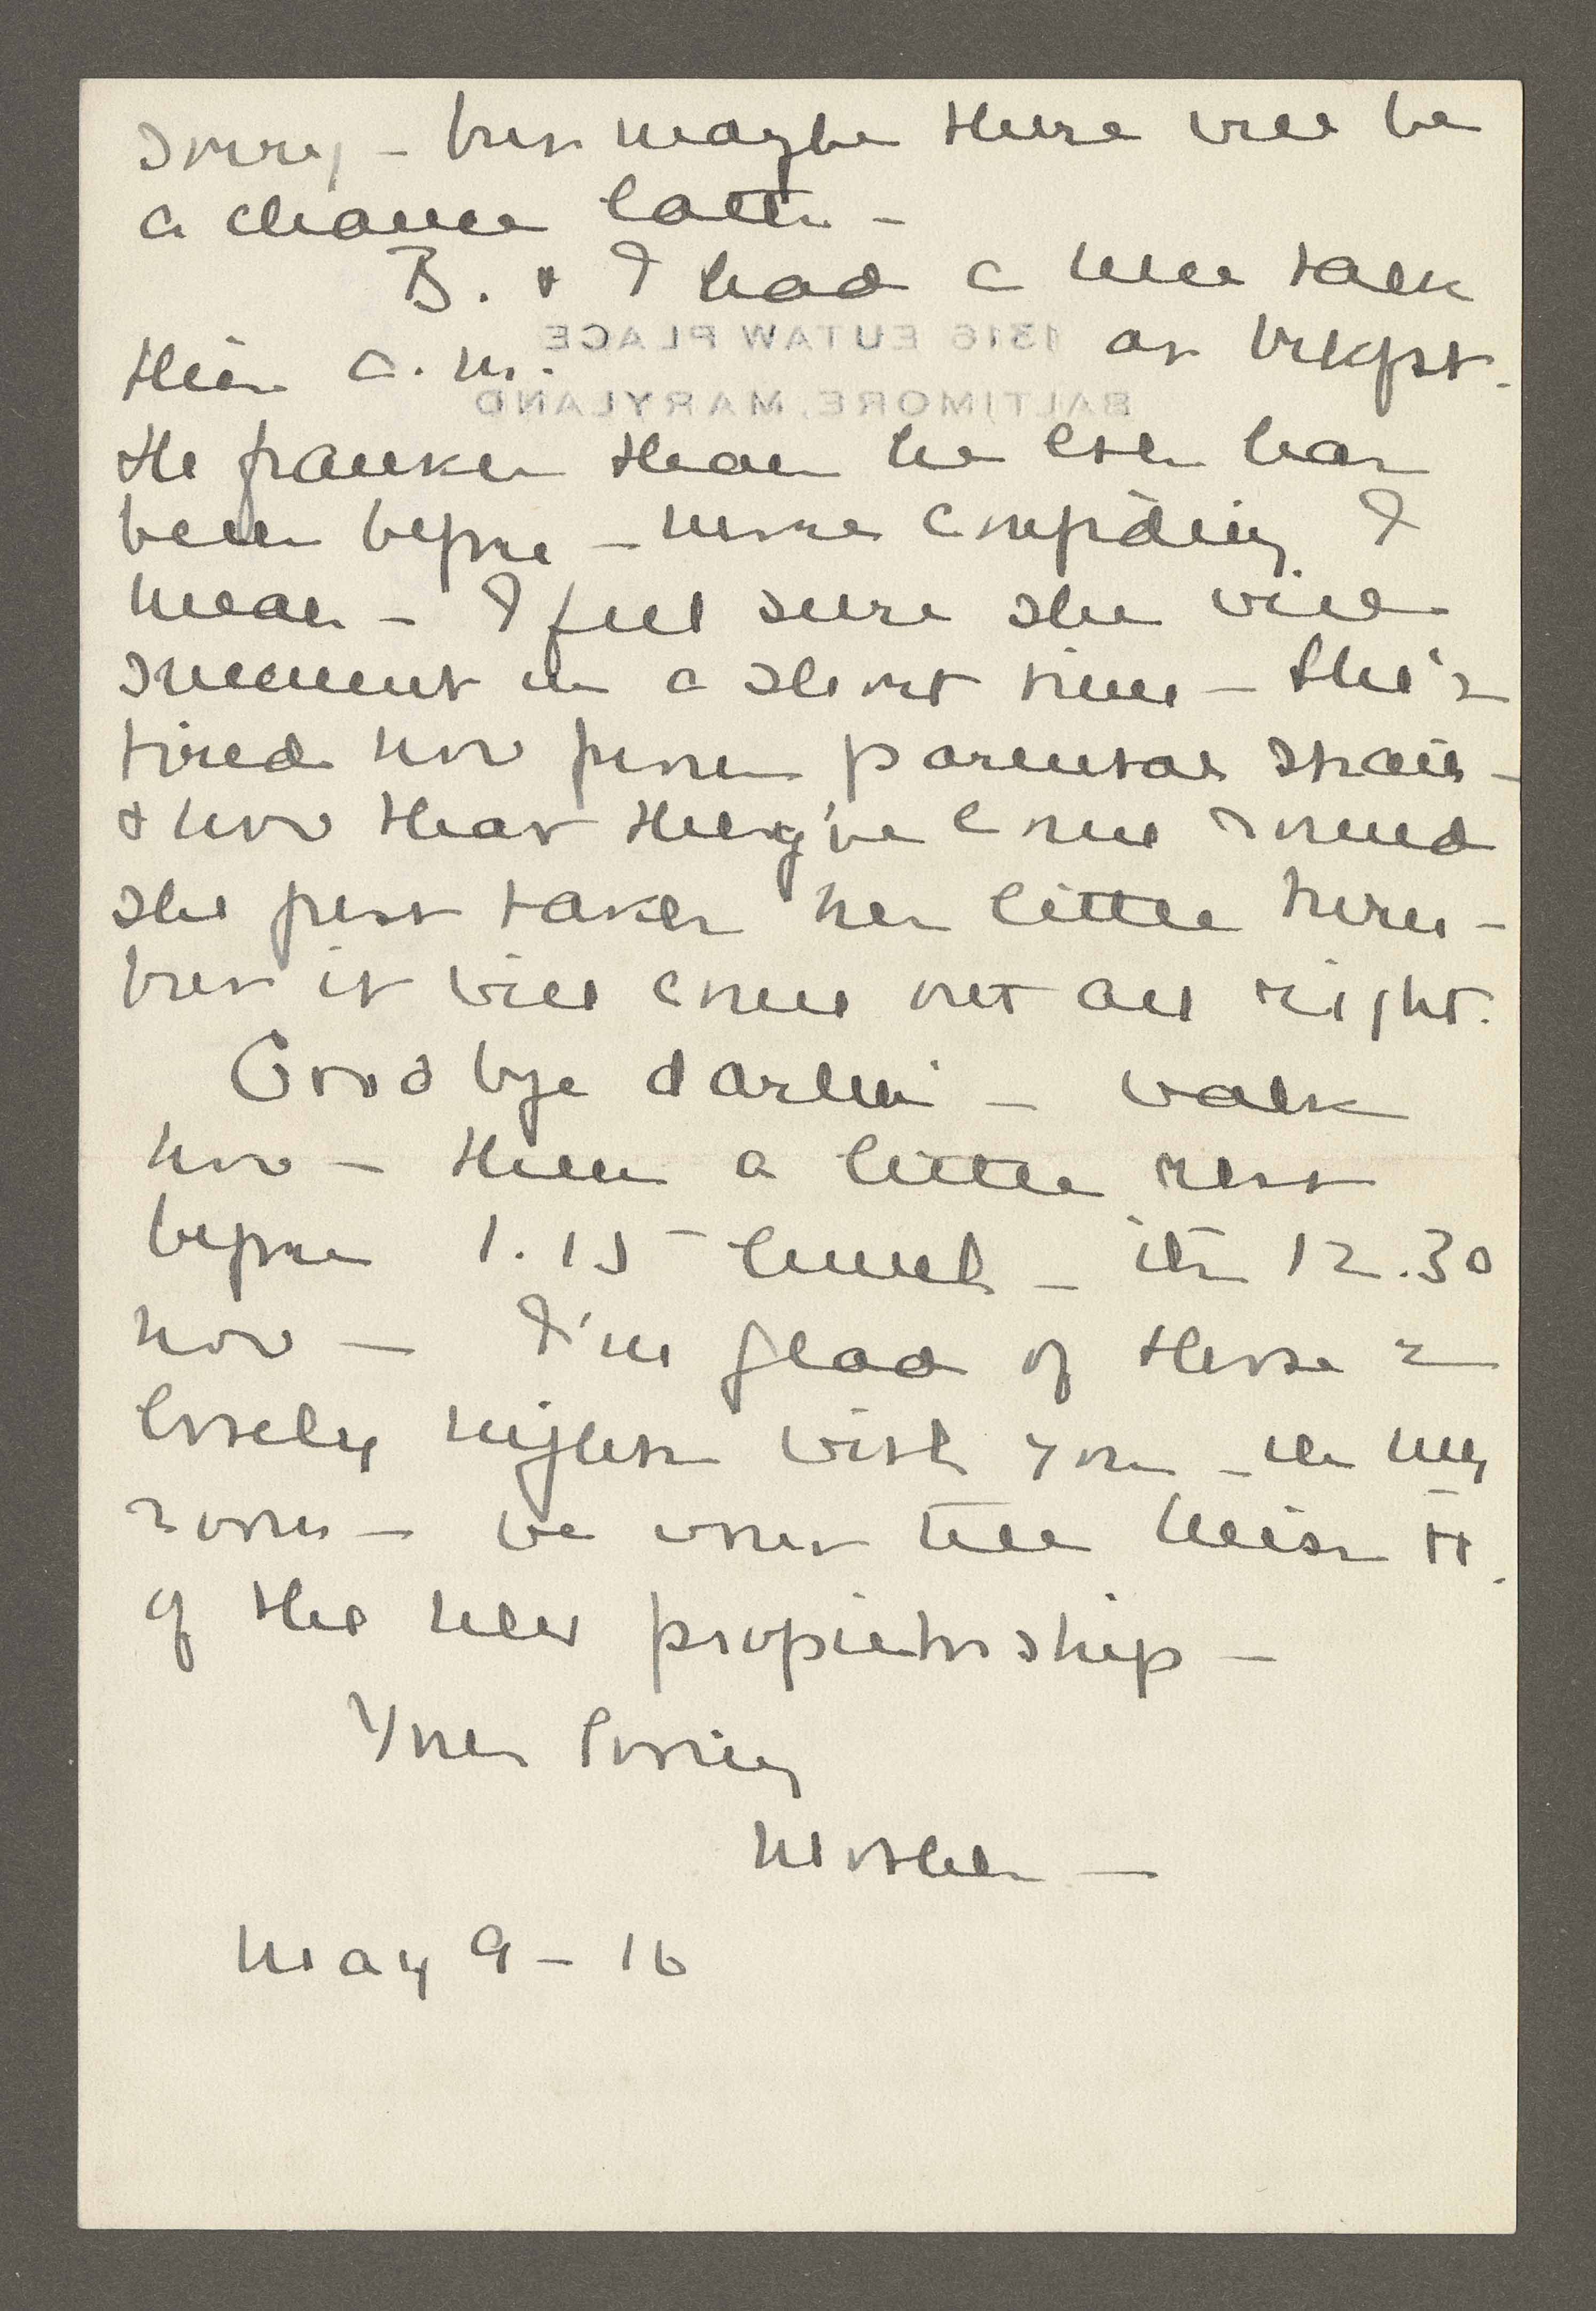 sorry - but maybe there will be
a chance later -
B. & I had a nice talk
1316 EUTAW PLACE
this a. m. at brkfst.
BALTIMORE, MARYLAND
He franker than he ever has
been before - more confiding I
mean - I feel sure she will
in a short time - she's
tired now from parental strain -
& now that they've come round
she just takes her little turn -
but it will come out all right.
Good bye darlin' - walk
now - then a little rest
before 1.15 lunch - its 12.30
now - I'm glad of those 2
lovely nights with you - in my
room - we won't tell Miss H.
of the new propietorship -
Your loving
Mother -
May 9 - 16